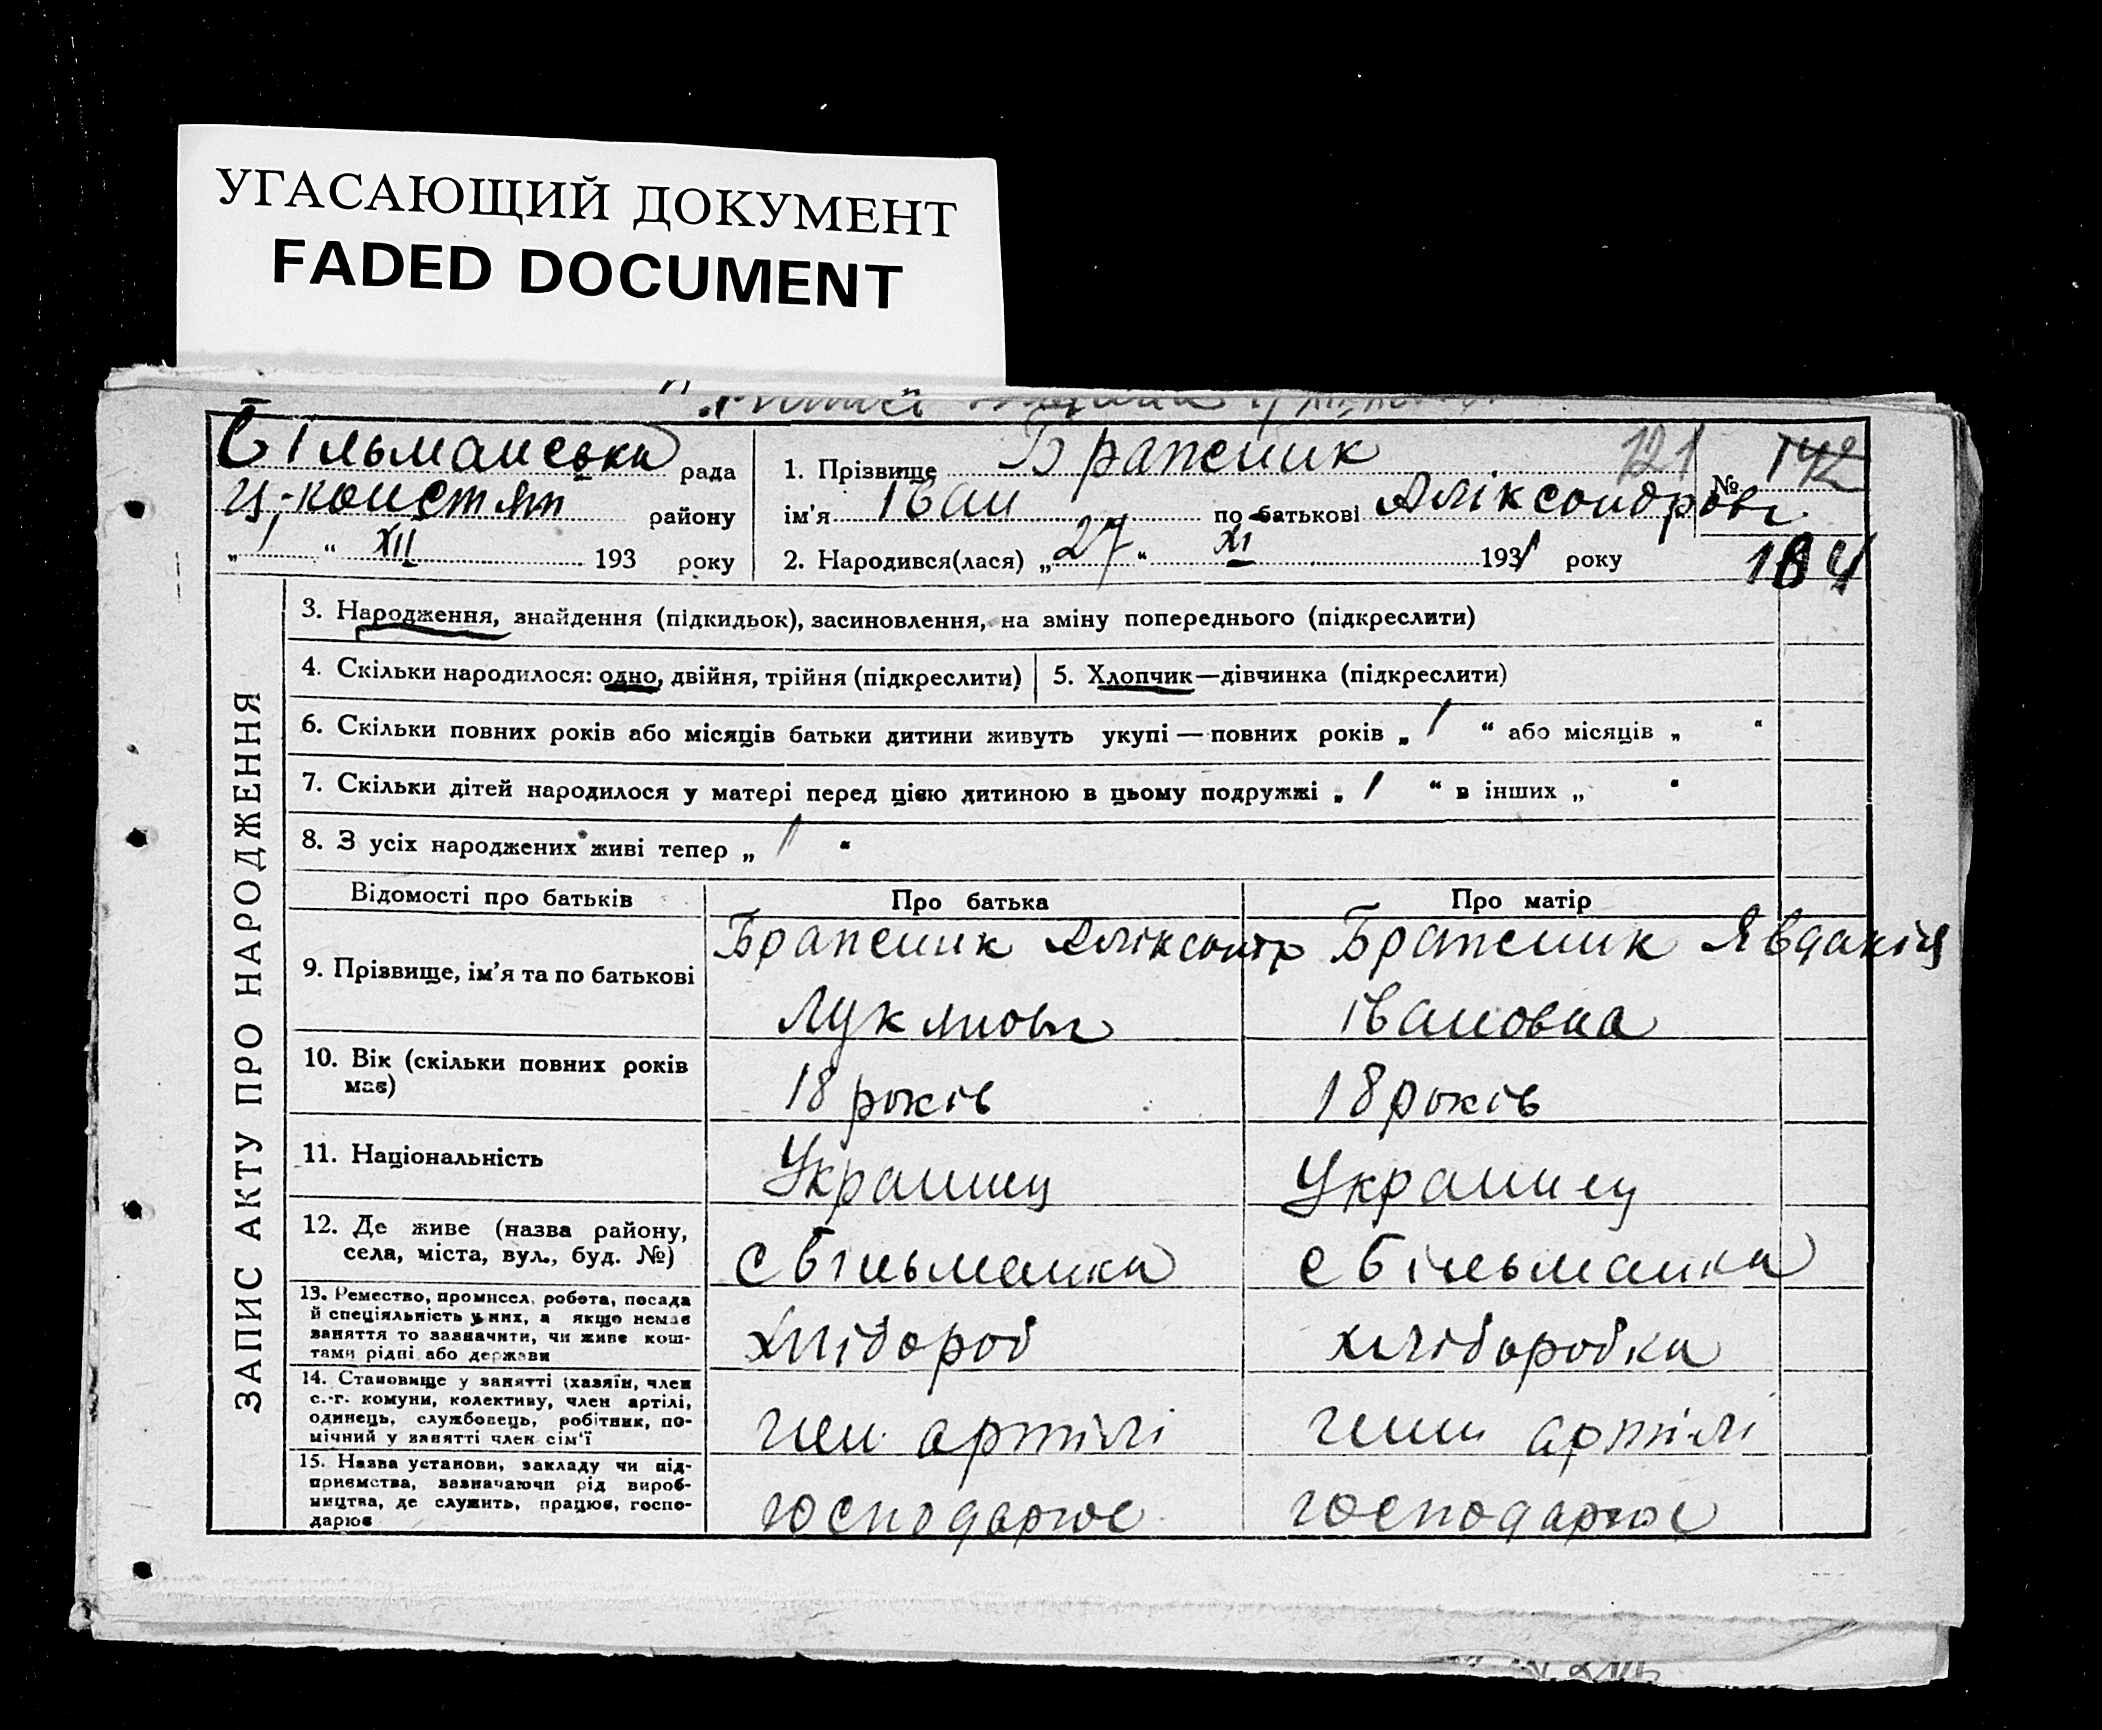 УГАСАЮЩИЙ ДОКУМЕНТ
FADED DOCUMENT
Більманська рада
ц-констян району
„ 1 “ XII 193 року
1. Прізвище Братеник 121
№ 142
ім’я Іван по-батькові Аліксондрові
2. Народився(лася) „ 27 “ XI 1931 року
184
ЗАПИС АКТУ ПРО НАРОДЖЕННЯ
3. Народження, знайдення (підкидьок), засиновлення, на зміну попереднього (підкреслити)
4. Скільки народилося: одно, двійня, трійня (підкреслити) 5. Хлопчик—дівчинка (підкреслити)
6. Скільки повних років або місяців батьки дитини живуть укупі — повних років „ 1 “ або місяців „ “
7. Скільки дітей народилося у матері перед цією дитиною в цьому подружжі „ 1 “ в інших „ “
8. З усіх народжених живі тепер „ 1 “
Відомості про батьків Про батька Про матір
9. Прізвище, ім’я та по батькові
Братеник Аліксонтр
Лукянові
Братеник Явдакія
івановна
10. Вік (скільки повних років
має)
18 років
18 років
11. Національність
Украинец
Украинец
12. Де живе (назва району,
села, міста, вул., буд. №)
с Більманка
с Більманка
13. Ремество, промисел, робота, посада
й спеціяльність у них, а якщо немає
заняття то зазначити, чи живе кош-
тами рідні або держави
Хлібороб
хліборобка
14. Становище у занятті (хазяїн, член
с.-г. комуни, колективу, член артілі,
одинець, службовець, робітник, по-
мічний у занятті член сім’ї
член артілі
член артілі
15. Назва установи, закладу чи під-
приємства, зазначаючи рід вироб-
ництва, де служить, працює, госпо-
дарює
господарює
господарює